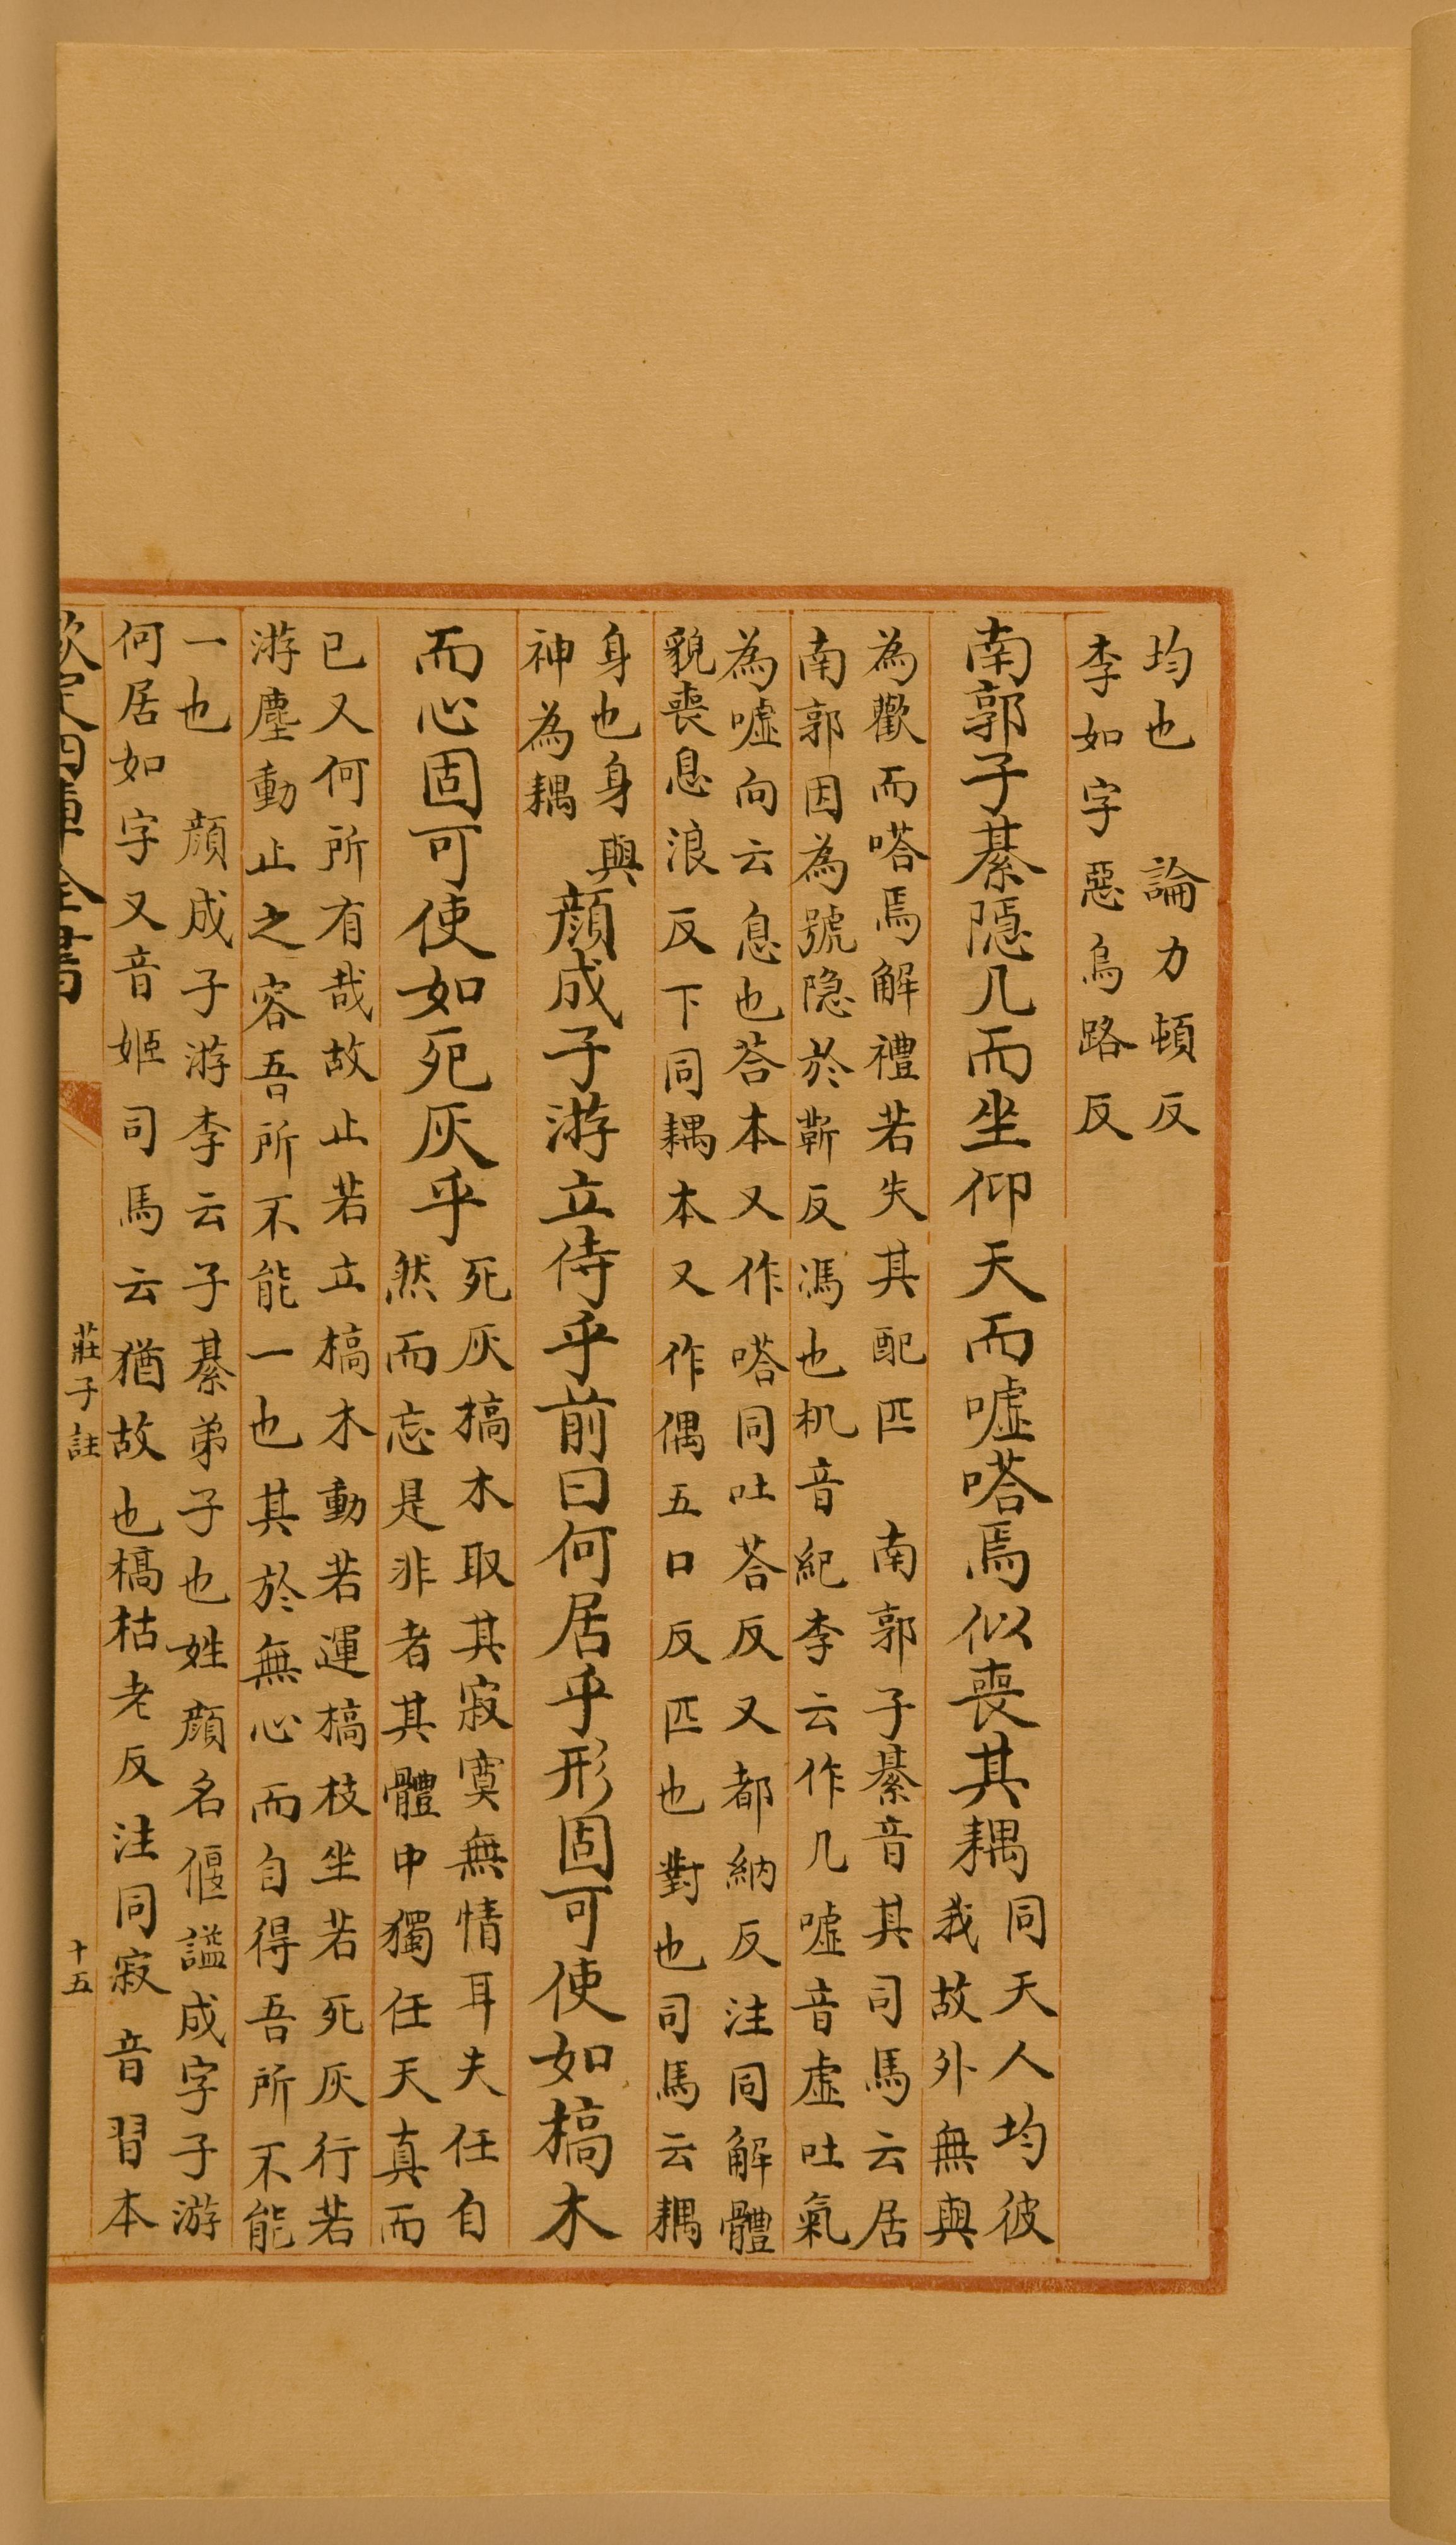 均也　論力頓反
李如字惡烏路反
南郭子綦隱几而坐仰天而噓嗒焉似喪其耦
同天人均彼
我故外無與
為歡而嗒焉解禮若失其配匹　南郭子綦音其司馬云居
南郭因為號隐於靳反馮也机音紀李云作几噓音虛吐氣
為噓向云息也荅本又作嗒同吐荅反又都納反注同解體
貌喪息浪反下同耦本又作偶五口反匹也對也司馬云耦
身也身與
神為耦
顔成子游立侍乎前曰何居乎形固可使如槁木
而心固可使如死灰乎
死灰槁木取其寂寞無情耳夫任自
然而忘是非者其體中獨任天真而
已又何所有哉故止若立槁木動若運槁枝坐若死灰行若
游塵動止之容吾所不能一也其於無心而自得吾所不能
一也　顔成子游李云子綦弟子也姓顔名偃諡成字子游
何居如字又音姬司馬云猶故也槁枯老反注同寂音習本
欽定四庫全書
莊子註
十五